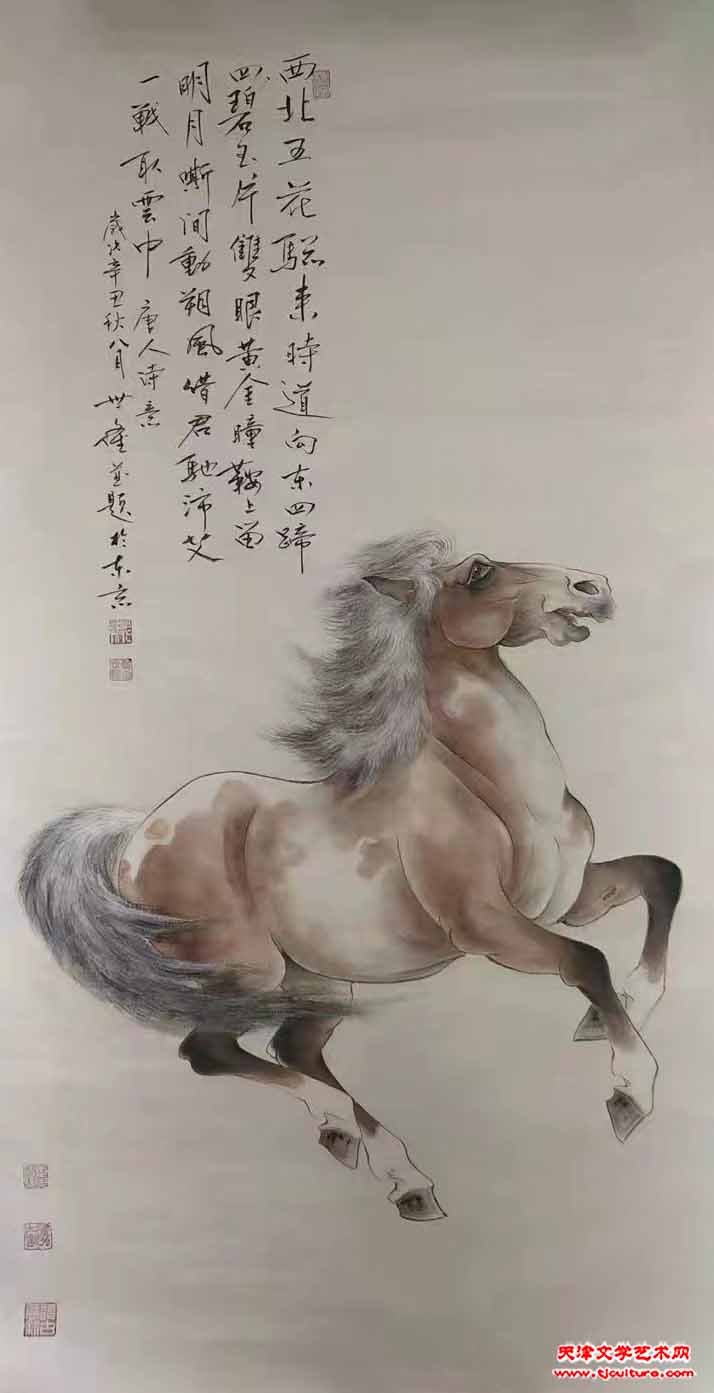 西北五花驄来時道向东四蹄
四碧玉片雙眼黄金瞳鞍上留
明月嘶间動朔風借君馳沛艾
一戰取雲中 唐人诗意
歲次辛丑秋八月世並題於东京
天津文学艺术网
www.tjculture.com